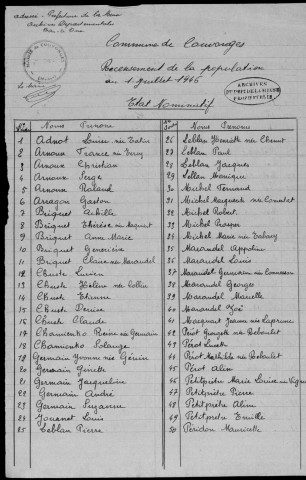 Commune de Couvonges
Recensement de la population
au 1 juillet 1945
ARCHIVES
Etat Nominatif
Noms Prénoms
1 Adnot
2 Arnoux France née
3 Arnoux Christian
4 Arnoux Serge
5 Arnoux Roland
6 Arragon Gaston
7 Briquet Achille
8 Briquet Thérèse née
9 Briquet Anne Marie
10 Briquet Geneviève
11 Briquet Claire née Marandel
12 Chuste Lucien
13 Chuste Hélène née Collin
14 Chuste Etienne
15 Chuste Denise
16 Chuste Claude
17 Chamienko Reine née Germain
18 Chamienko Solange
19 Germain Yvonne née Génin
20 Germain Ginette
21 Germain Jacqueline
22 Germain André
23 Germain Suzanne
24 Jouanet Louis
25 Leblan Pierre
Noms Prénoms
26 Leblan Henriette née
27 Leblan Paul
28 Leblan Jacques
29 Leblan Monique
30 Michel Fernand
31 Michel Marguerite née
32 Michel Robert
33 Michel Prosper
34 Michel Marie née
35 Marandel Appoline
36 Marandel Louis
37 Marandel née
38 Marandel Georges
39 Marandel Marcelle
40 Marandel José
41 Macquart Jeanne née
42 Pérot Georgette née Reboulet
43 Pérot Lucette
44 Pérot Mathilde née Reboulet
45 Pérot Alim
46 Petitprêtre Marie Louise née
47 Petitprêtre Pierre
48 Petitprêtre Aline
49 Petitprêtre Emille
50 Péridon Mauricette